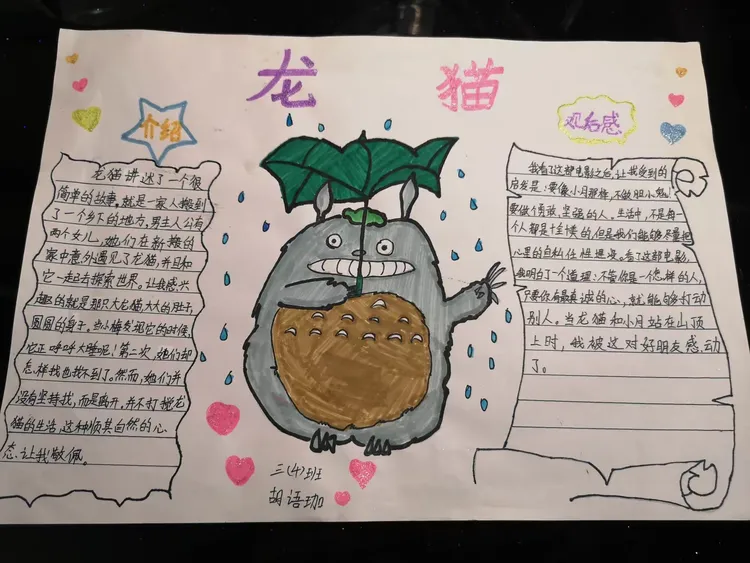 龙猫
介绍
龙猫讲述了一个很
简单的故事,就是一家人搬到
了一个乡下的地方,男主人公有
两个女儿。她们在新搬的
家中意外遇见了龙猫,并且和
它一起去探索世界。让我感兴
趣的就是那只大龙猫,大大的肚子,
圆圆的身子,当小梅发现它的时候,
它正呼呼大睡呢!第二次,她们却
怎样找也找不到了。然而,她们并
没有坚持找,而是离开,并不打搅龙
猫的生活,这种顺其自然的心
态,让我敬佩。
观后感
我看了这部电影之后,让我受到的
启发是:要像小月那样,不做胆小鬼,
要做个勇敢、坚强的人。生活中,不是每一
个人都是十全十美的,但是我们能够尽量把
心里的自私任性埋没。看了这部电影,
我明白了一个道理:不管你是个怎样的人,
只要你有最真诚的心,就能够打动
别人。当龙猫和小月站在山顶
上时,我被这对好朋友感动
了。
三(4)班
胡语珈